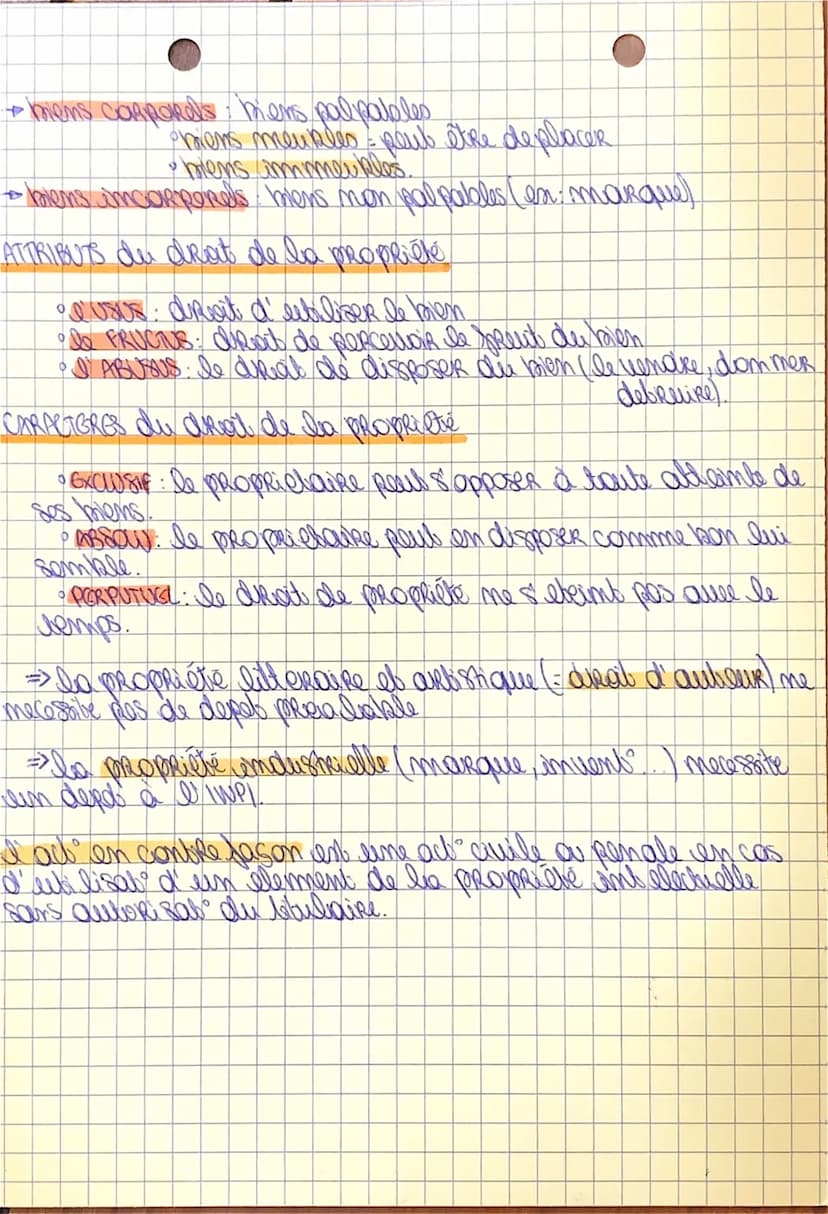 → biens CORPORELS : biens palpables
° biens meubles = peut être deplacer
° biens immeubles.
→ biens incorporels : biens non palpables (ex: marque)
ATTRIBUTS du droit de la propriété
° l'USUS : droit d'utiliser le bien
° le FRUCTUS : droit de percevoir le fruit du bien
° l'ABUSUS : le droit de disposer du bien (le vendre, donner
detruire).
CARACTERES du droit de la propriété
° EXCLUSIF : le propriétaire peut s'opposer à toute atteinte de
ses biens.
° ABSOLU : le proprietaire peut en disposer comme bon lui
semble.
° PERPUTUEL : le droit de propriété ne s'eteint pas avec le
temps.
⇒ la propriété litteraire et artistique (= droit d'auteur) ne
necessite pas de depot prealable
⇒ la propriété industrielle (marque, invent°...) necessite
un depot à l'INPI.
l'act° en contrefaçon est une act° civile ou penale en cas
d'utilisat° d'un element de la propriété intelectuelle
sans autorisat° du titulaire.